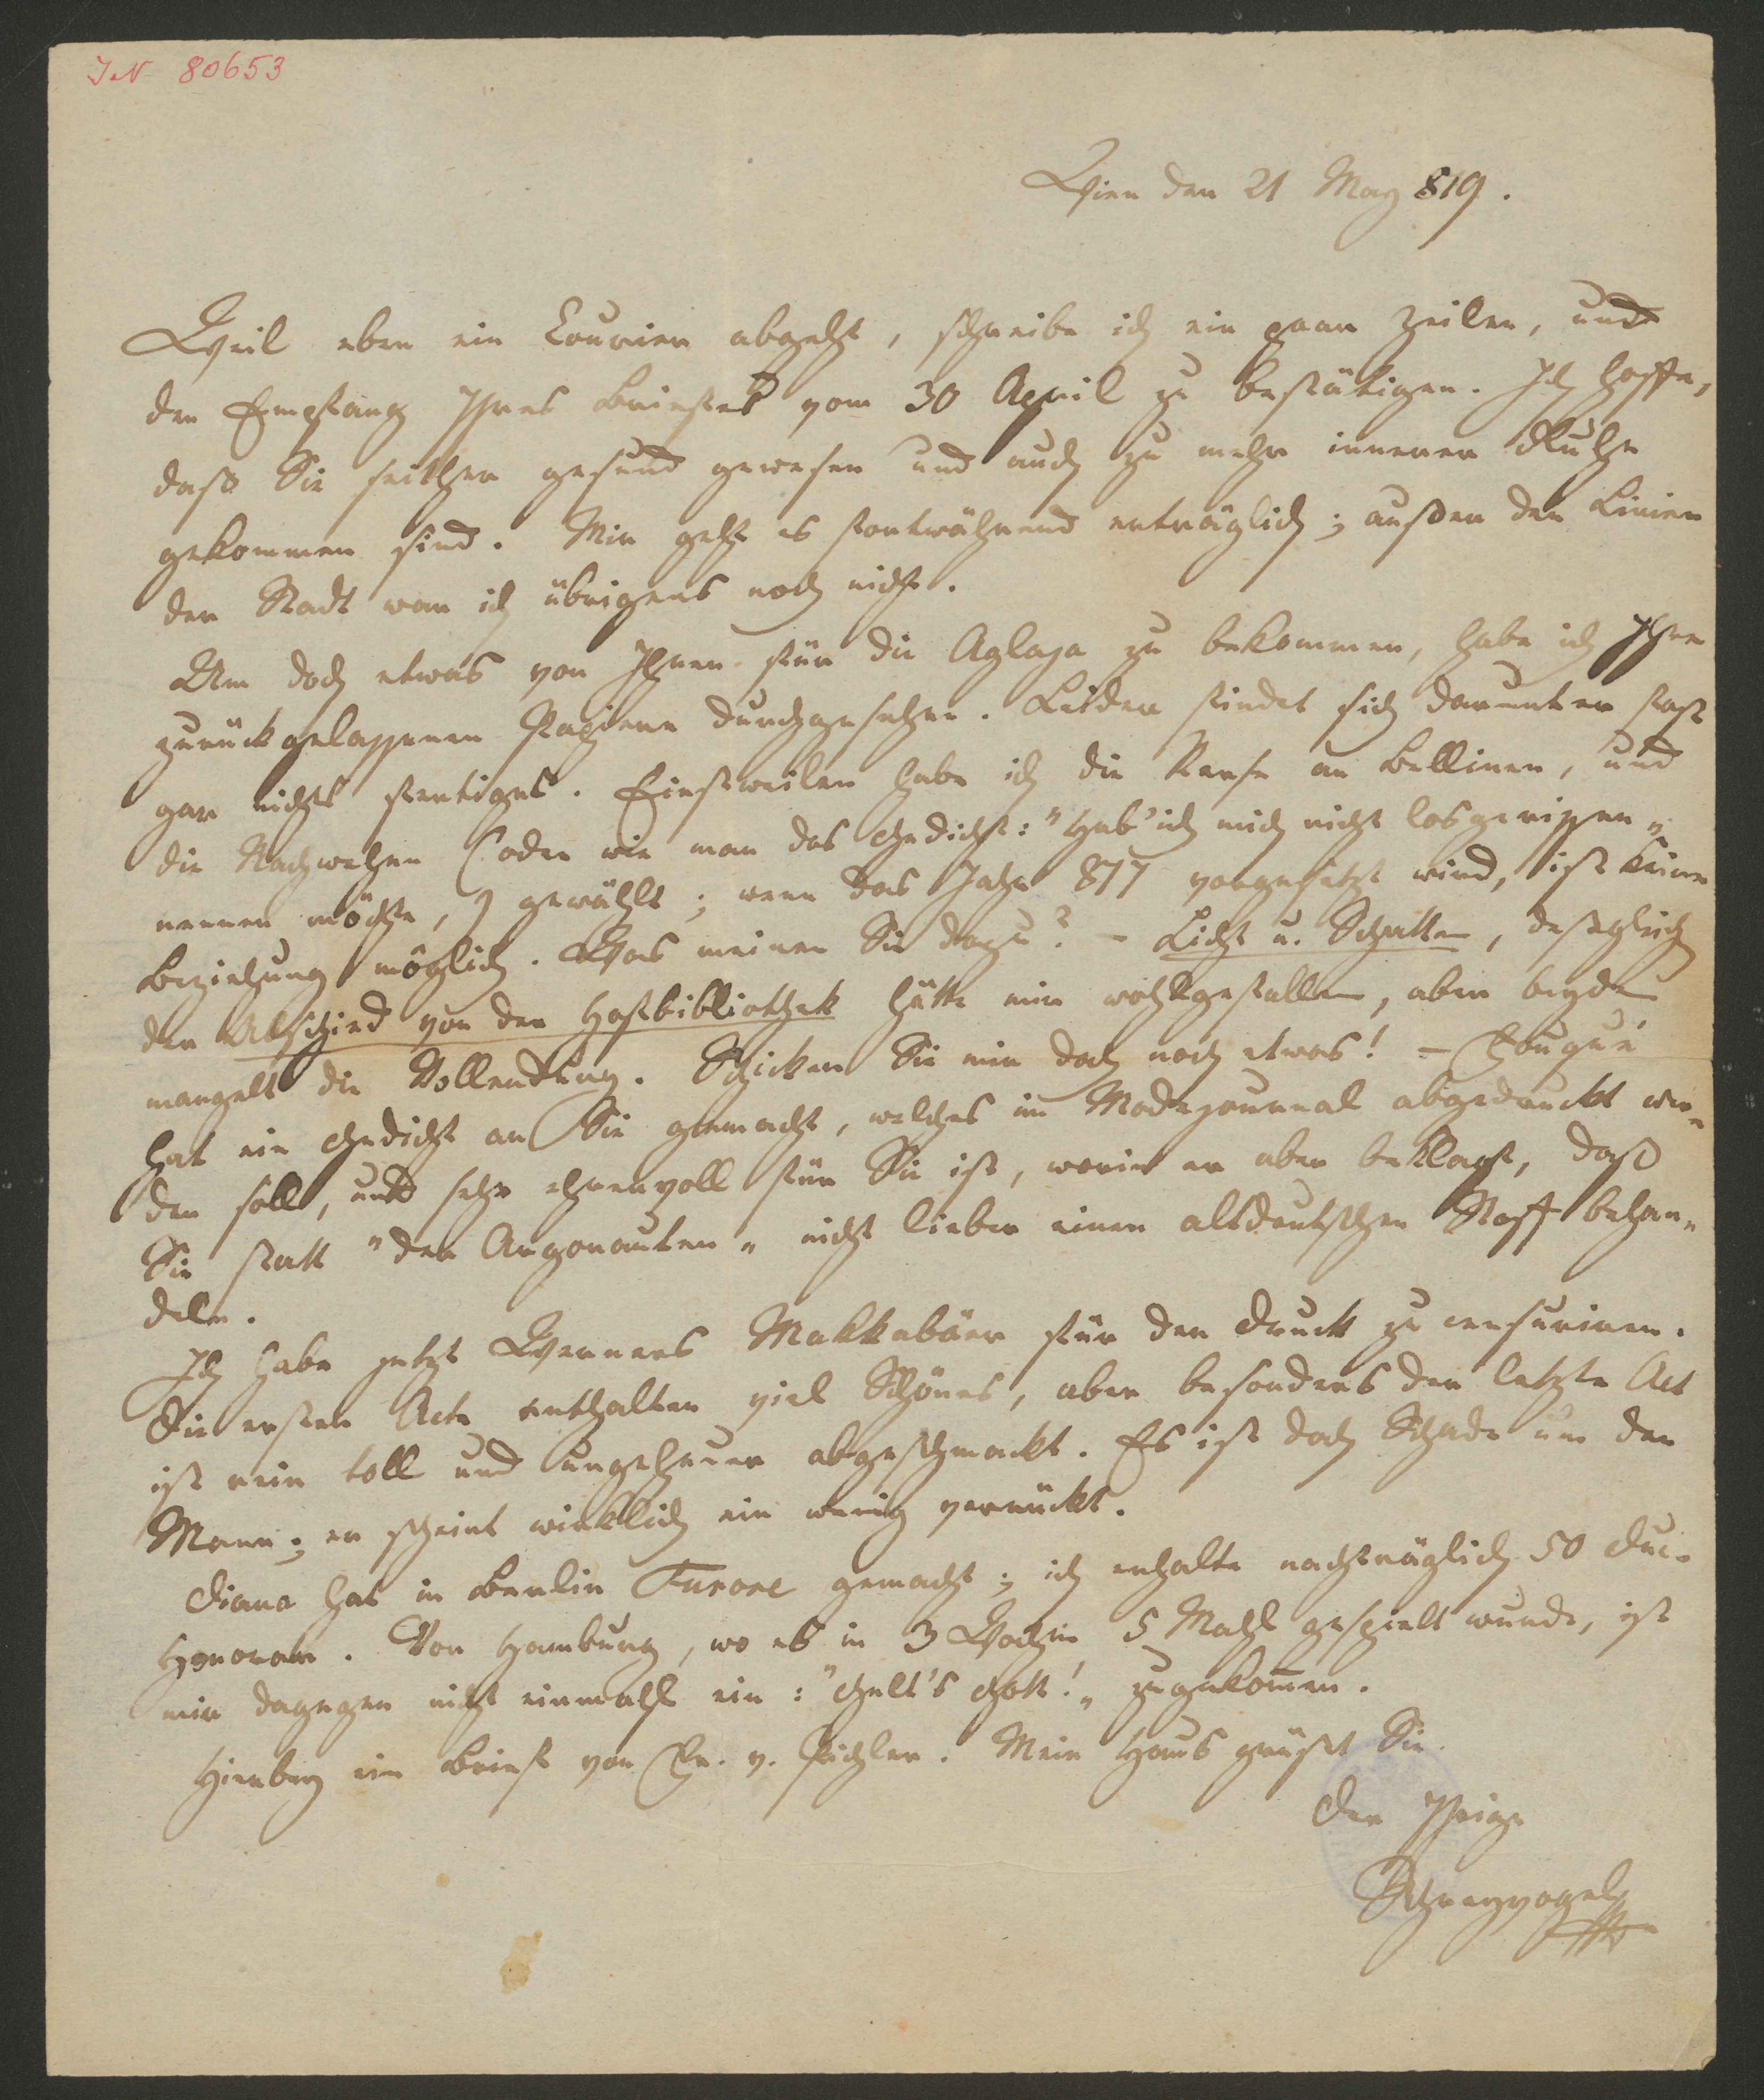 IN 80653
Wien den 21 May 819.
Weil eben ein Courier abgeht, schreibe ich ein paar Zeilen, und
den Empfang Ihres Briefes vom 30 April zu bestätigen. Ich hoffe,
daß Sie seither gesund gewesen und auch zu mehr innerer Ruhe
gekommen sind. Mir geht es fortwährend erträglich; außer den Linien
der Stadt war ich übrigens noch nicht.
Um doch etwas von Ihnen für die Aglaja zu bekommen, habe ich Ihre
zurückgelassenen Papiere durchgesehen. Leider findet sich darunter fast
gar nichts fertiges. Einstweilen habe ich die Verse an Bellinen, und
die Nachwehen (oder wie man das Gedicht: "Hab' ich mich nicht losgerissen"
nennen möchte,) gewählt; wenn das Jahr 817 vorgesetzt wird, ist keine
Beziehung möglich. Was meinen Sie dazu? – Licht u. Schatten, deßgleich
der Abschied von der Hofbibliothek hätte mir wohlgefallen, aber beyden
mangelt die Vollendung. Schicken Sie mir doch noch etwas! – Fouqué
hat ein Gedicht an Sie gemacht, welches im Modejournal abgedruckt wer-
den soll, und sehr ehrenvoll für Sie ist, worin er aber beklagt, daß
Sie statt "der Argonauten" nicht lieber einen altdeutschen Stoff behan-
deln.
Ich habe jetzt Werners Makkabäer für den Druck zu censuriren.
Die ersten Acte enthalten viel Schönes, aber besonders der letzte Act
ist rein toll und ungeheuer abgeschmackt. Es ist doch Schade um den
Mann; er scheint wirklich ein wenig verrückt.
Diana hat in Berlin Furore gemacht; ich erhalte nachträglich 50 Duc.
Honorar. Von Hamburg, wo es in 3 Wochen 5 Mahl gespielt wurde, ist
mir dagegen nicht einmahl ein: "Gelt's Gott!" zugekommen.
Hierbey ein Brief von Fr. v. Pichler. Mein Haus grüßt Sie.
Der Ihrige
Schreyvogel